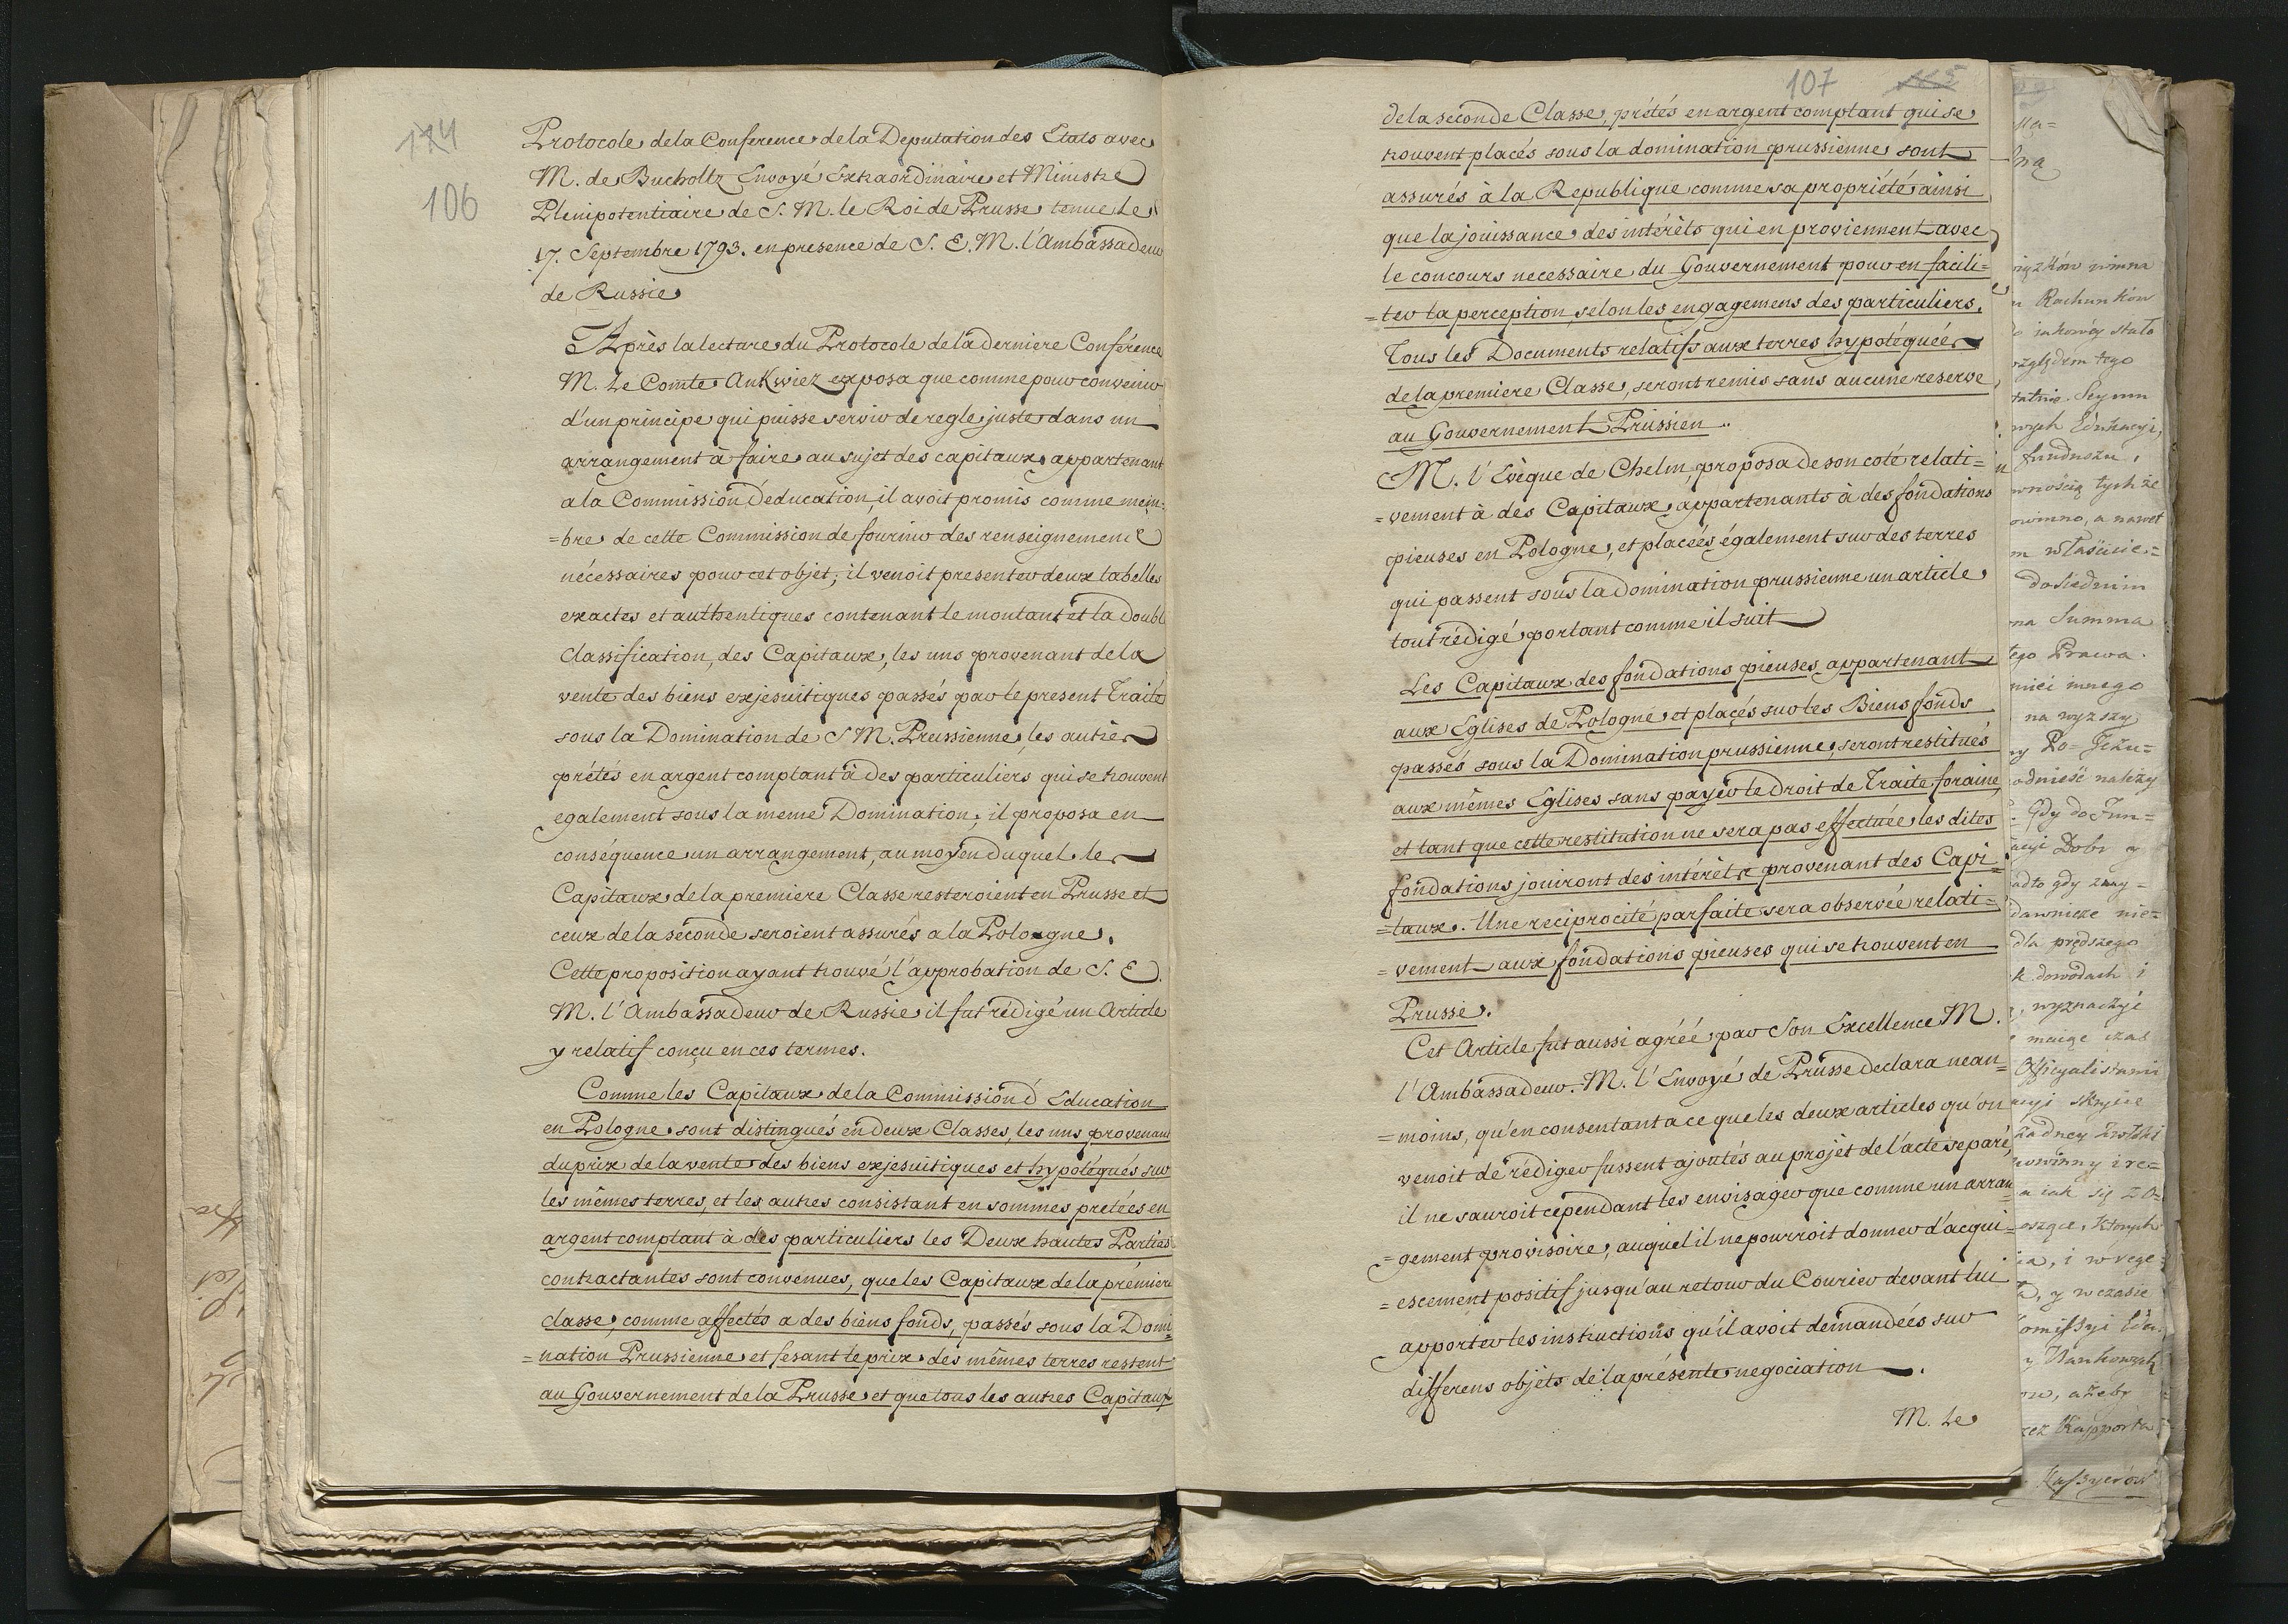 174
106
Protocole de la Conference de la Deputation des Etats avec
M. de Bucholtz Envoyé Extraordinaire et Ministre
Plenipotentiaire de S. M. le Roi de Prusse tenue le
17. Septembre 1793. en presence de S. E. M. l'Ambassadeur
de Russie
Après la lecture du Protocole de la derniere Conférence
M. Le Comte Ankwiez exposa que comme pour convenir
d'un principe qui puisse servir de regle juste dans un
arrangement à faire au sujet des capitaux appartenant
a la Commission d'éducation, il avoit promis comme mem=
=bre de cette Commission de fournir des renseignemens
nécessaires pour cet objet; il venoit presenter deux tabelles
exactes et authentiques contenant le montant et la doubl
Classification, des Capitaux, les uns provenant de la
vente des biens exjesuitiques passés par le present Traité
sous la Domination de S M. Prussienne, les autres
prétés en argent comptant à des particuliers qui se trouvent
egalement sous la meme Domination; il proposa en
conséquence un arrangement, au moyen du quel les
Capitaux de la premiere Classe resteroient en Prusse et
ceux de la seconde seroient assurés a la Pologne.
Cette proposition ayant trouvé l'approbation de S. E.
M. l'Ambassadeur de Russie il fut rédigé un Article
y relatif conçu en ces termes.
Comme les Capitaux de la Commission d'Education
en Pologne sont distingués en deux Classes, les uns provenant
du prix de la vente des biens exjesuitiques et hypotéqués sur
les mêmes terres, et les autres consistant en sommes pretées en
argent comptant à des particuliers les Deux hautes Parties
contractantes sont convenues, que les Capitaux de la prémiere
classe, comme affectés a des biens fonds, passés sous la Domi=
=nation Prussienne et fesant le prix des mêmes terres restent
au Gouvernement de la Prusse et que tous les autres Capitaux
107
de la seconde Classe, prétés en argent comptant qui se
trouvent placés sous la domination prussienne sont
assurés à la Republique comme sa propriété ainsi
que la jouissance des intérêts qui en proviennent avec
le concours necessaire du Gouvernement pour en facili=
=ter la perception, selon les engagemens des particuliers.
Tous les Documents relatifs aux terres hypotéquées
de la premiere Classe, seront remis sans aucune reserve
au Gouvernement Prussien.
M. l'Evêque de Chelm, proposa de son coté relati=
=vement à des Capitaux, appartenants à des fondations
pieuses en Pologne, et placés également sur des terres
qui passent sous la Domination prussienne un article
tout rédigé portant comme il suit
Les Capitaux des fondations pieuses, appartenant
aux Eglises de Pologne et placés sur les Biens fonds
passés sous la Domination prussienne, seront restitués
aux mêmes Eglises sans payer le droit de Traite foraine,
et tant que cette restitution ne sera pas effectuée les dites
fondations jouiront des intérêts provenant des Capi=
=taux. Une reciprocité parfaite sera observée relati=
=vement aux fondations pieuses qui se trouvent en
Prusse.
Cet Article fut aussi agréé par Son Excellence M.
l'Ambassadeur. M. l'Envoyé de Prusse declara nean=
=moins, qu'en consentant a ce que les deux articles qu'on
venoit de rédiger fussent ajoutés au projet de l'acte separé,
il ne sauroit cependant les envisager que comme un arran=
=gement provisoire, auquel il ne pourroit donner d'acqui=
=escement positif jusqu'au retour du Courier devant lui
apporter les instructions qu'il avoit demandées sur
differens objets de la présente negociation.
M. Le
n Rachunków
względem tego
funduszu,
na Summa
tego Prawa.
na wyzszy
Dobr y
dla prędszego
k dowodach i
, wyznaczyć
y w czasie